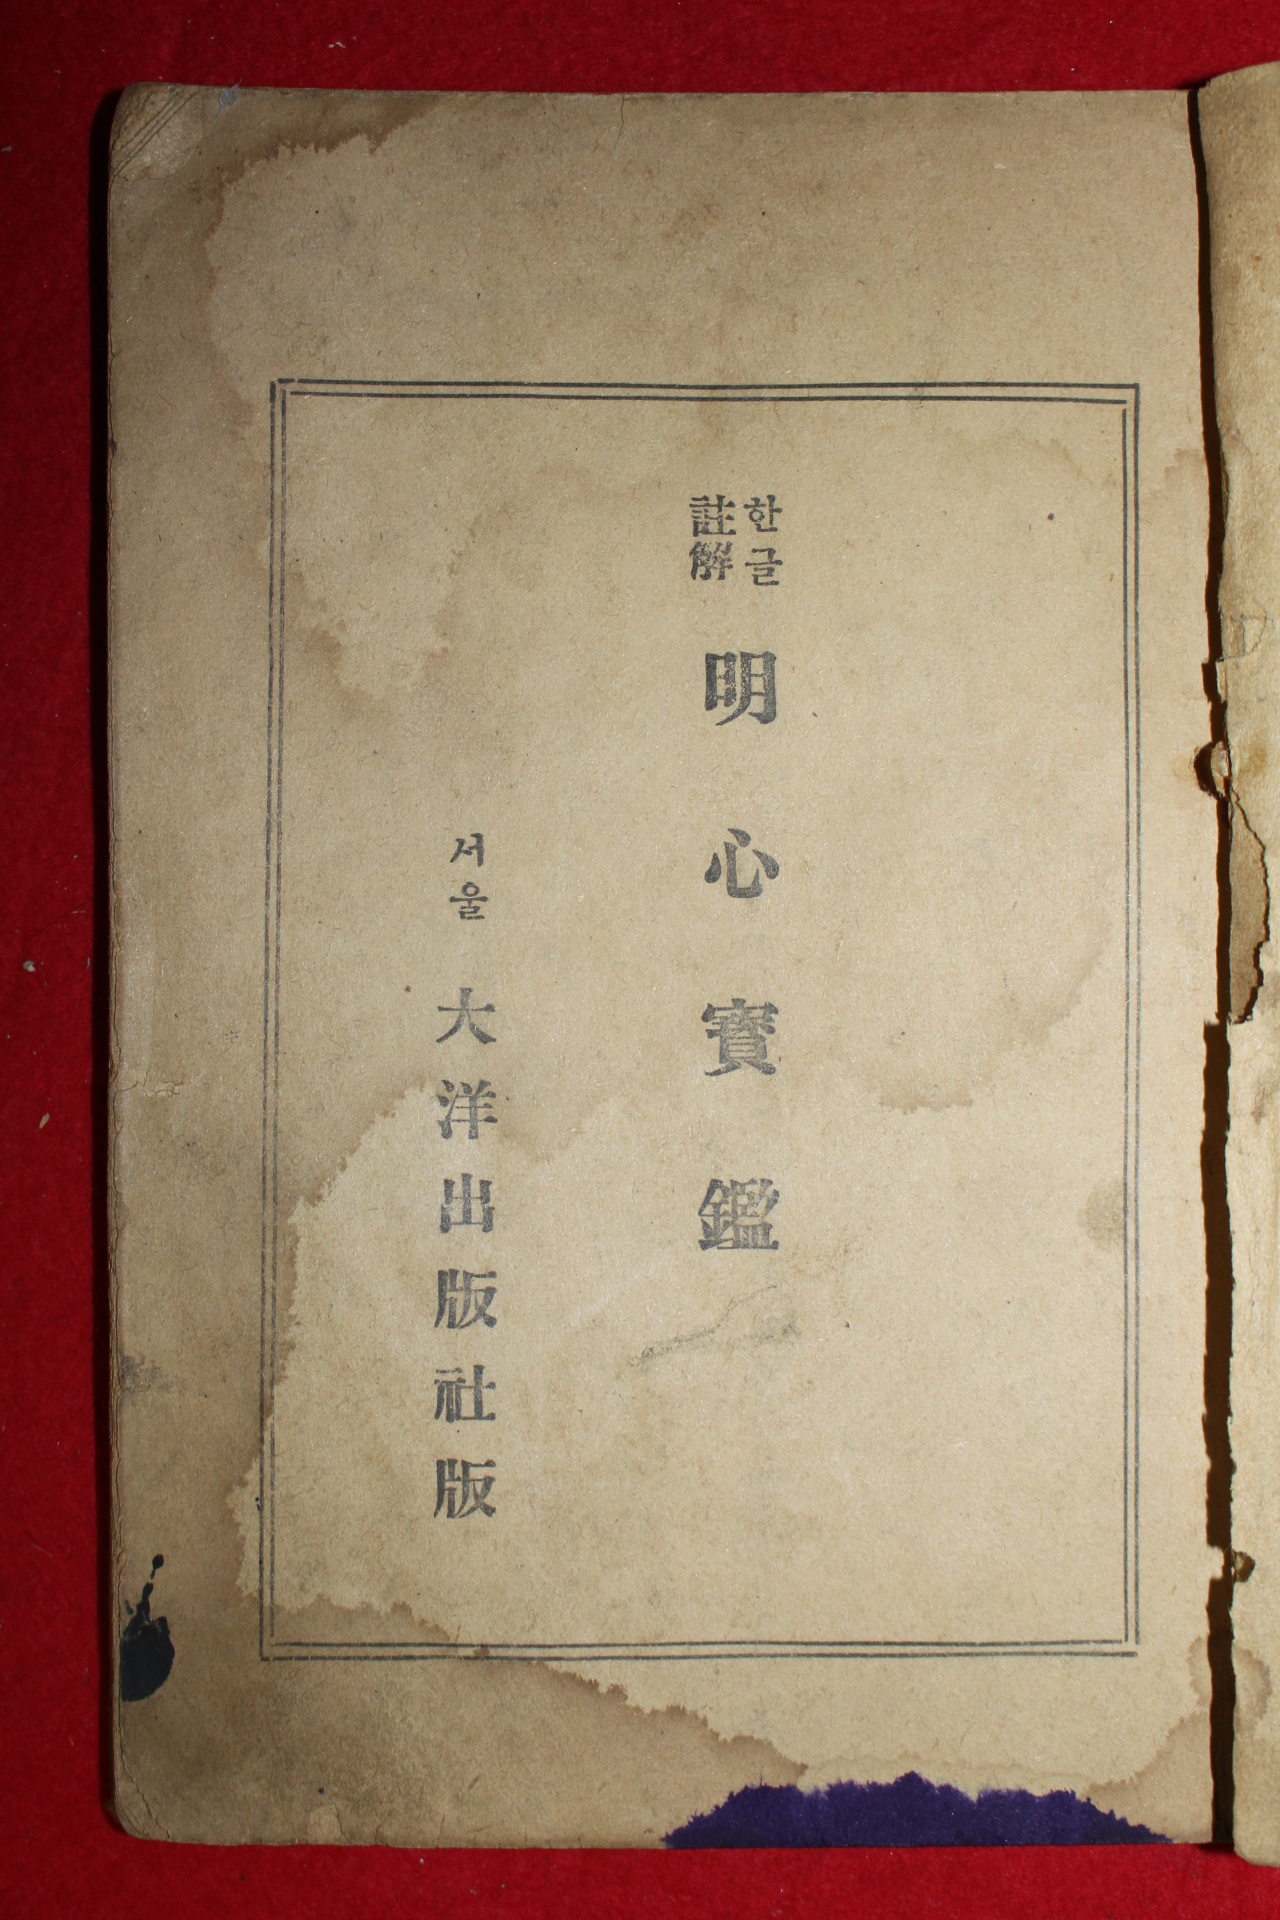 한글
註解
明心寶鑑
서울 大洋出版社版